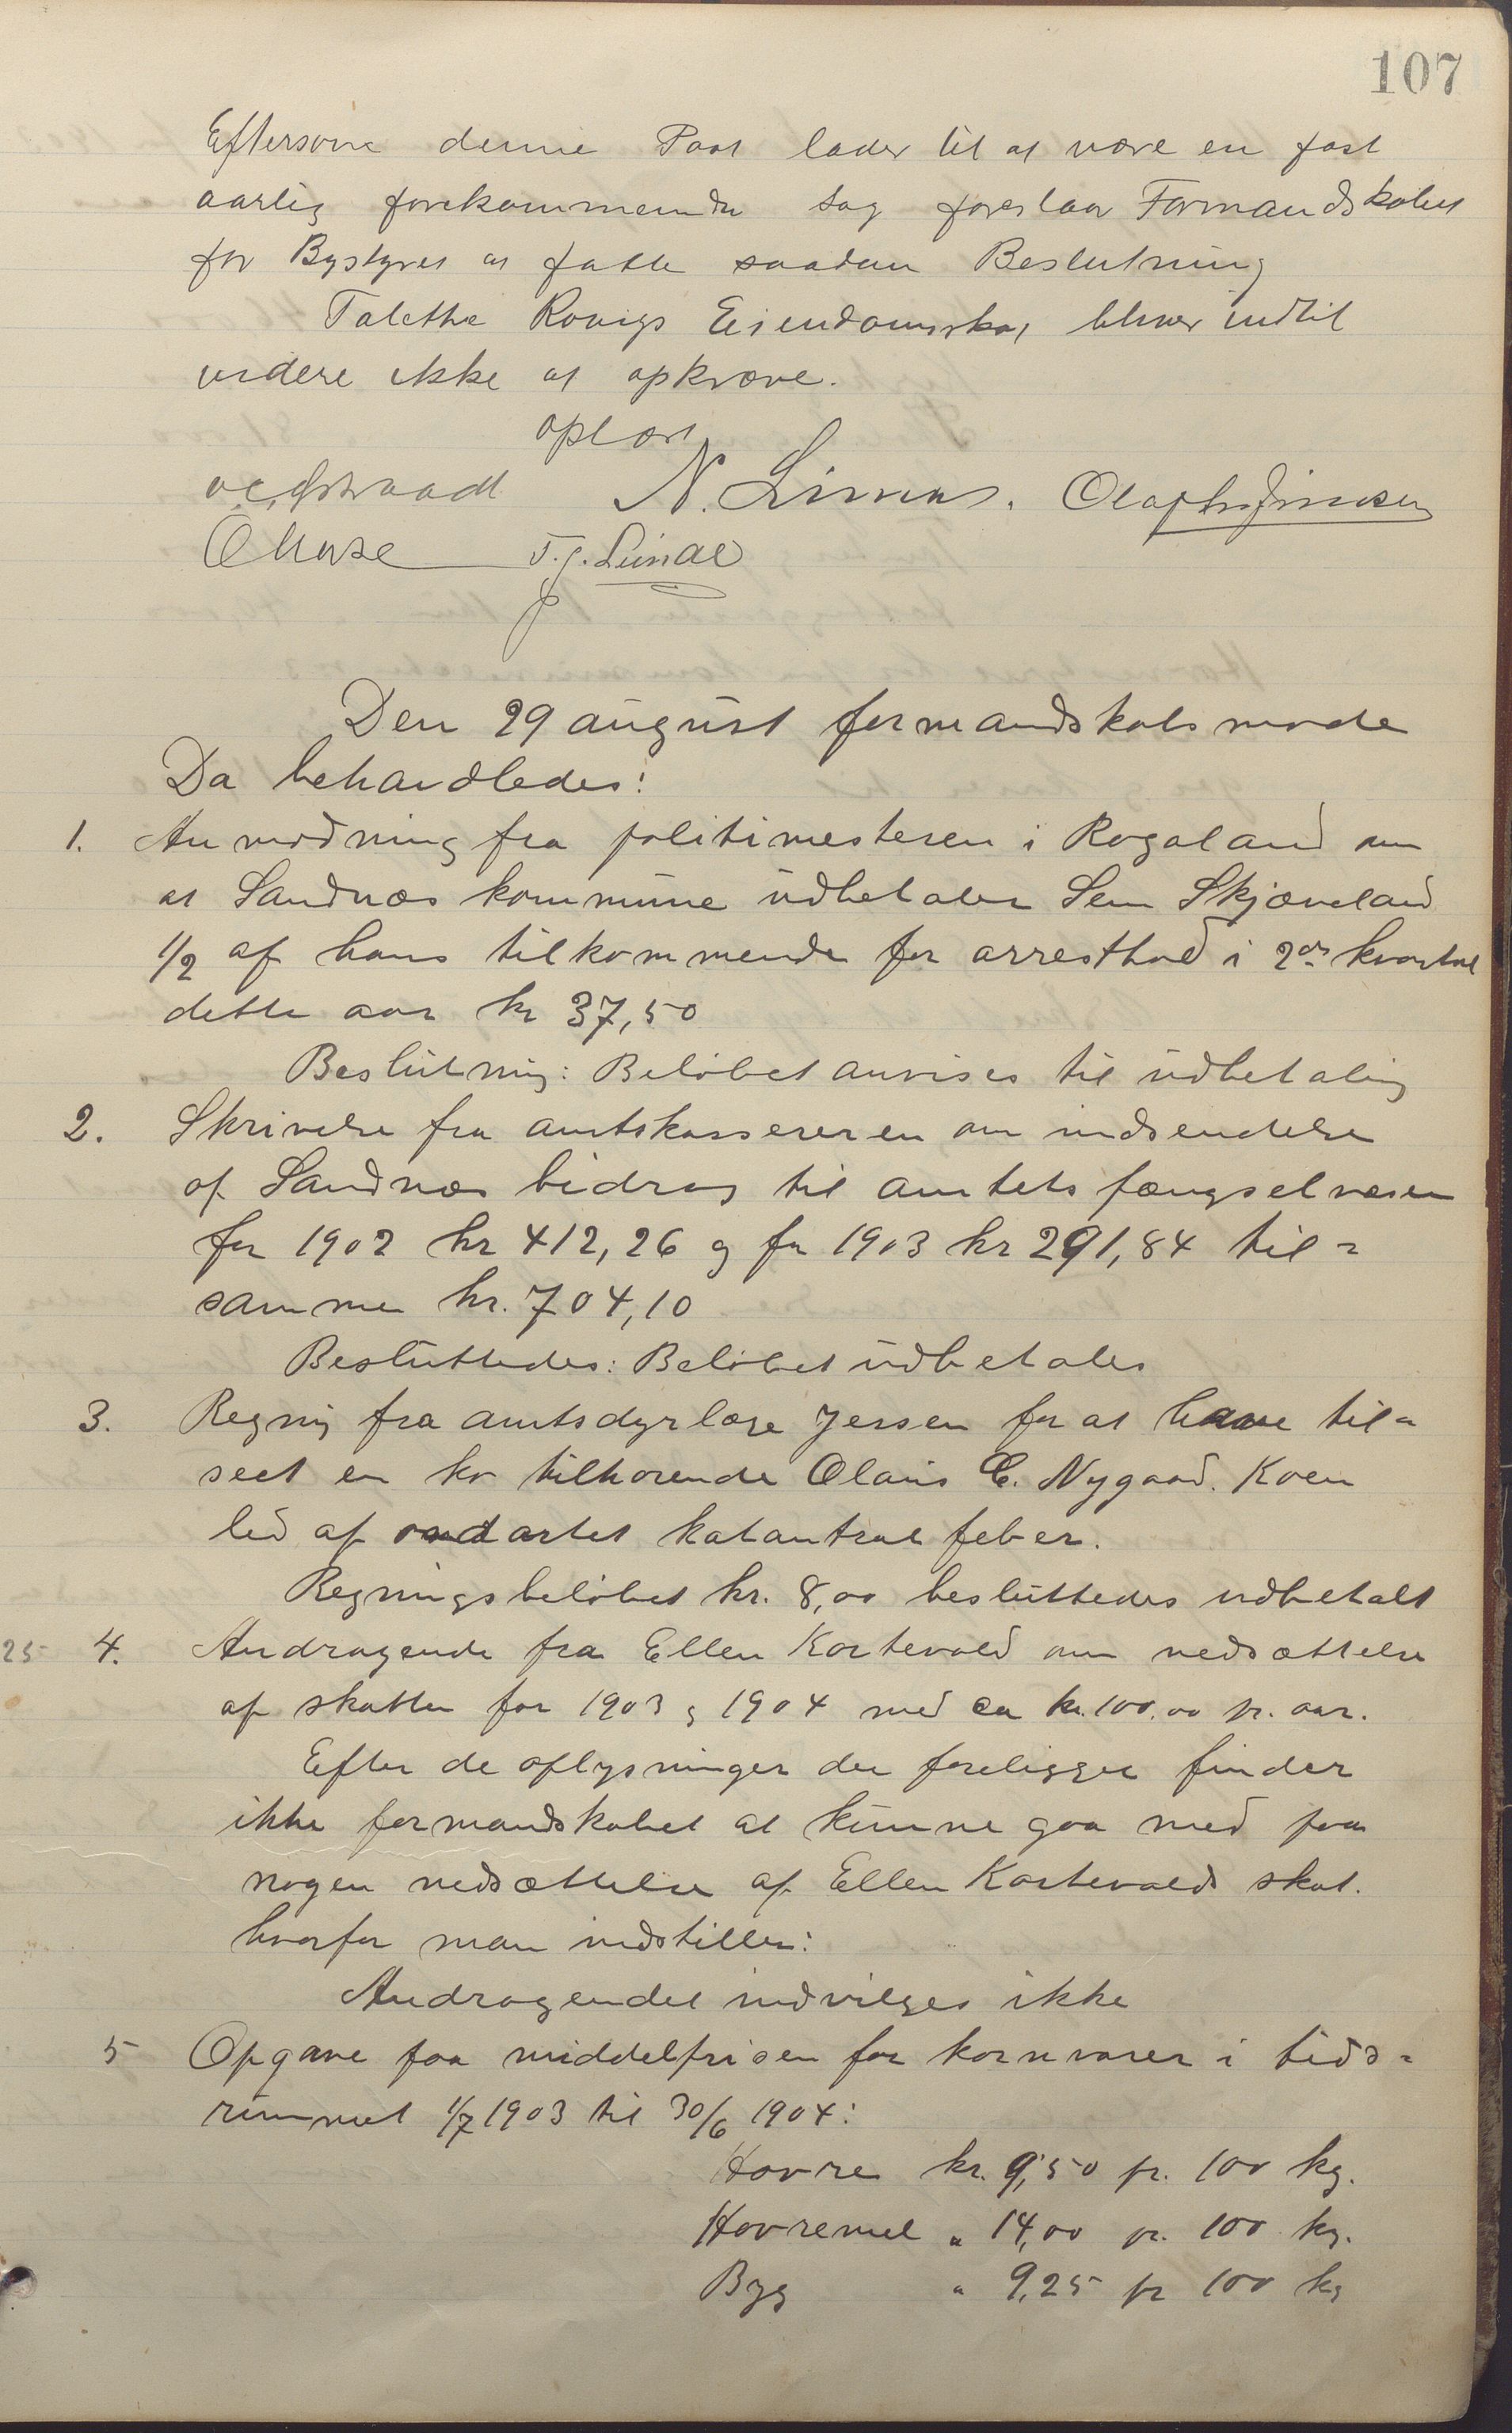 107
Eftersom denne Post lader til at være en fast
aarlig forekommende Sag foreslaar Formandskabet
for Bystyret at fatte saadan Beslutning
Talette Rovigs Eiendomsskat bliver indtil
videre ikke at opkræve.
oplæst
N. Simars. Olaph
T. G. Lunde
Den 29 august formandskabsmøde
Da behandledes:
1. Anmodning fra politimesteren i Rogaland om
at Sandnæs kommune udbetaler Sem Skjæveland
1/2 af hans tilkommende for arresthold i 2det kvartal
dette aar kr 37,50
Beslutning: Beløbet anvises til udbetaling
2. Skrivelse fra amtskassereren om indsendelse
af Sandnæs bidrag til amtets fængselvæsen
for 1902 kr 412,26 og for 1903 kr 291,84 til=
sammen kr. 704,10
Besluttedes: Beløbet udbetales
3. Regning fra amtsdyrlæge Jessen for at have til=
seet en ko tilhørende Olaus C. Nygaard. Koen
led af ondartet katarrhal feber.
Regningsbeløbet kr. 8,00 besluttedes udbetalt
25 4. Andragende fra Ellen Kortevold om nedsættelse
af skatten for 1903 & 1904 med ca kr. 100.00 pr. aar.
Efter de oplysninger der foreligger finder
ikke formandskabet at kunne gaa med paa
nogen nedsættelse af Ellen Kortevolds skat.
hvorfor man indstiller:
Andragendet indvilges ikke
5 Opgave paa middelprisen for kornvarer i tids=
rummet 1/7 1903 til 30/6 1904:
Havre kr. 9,50 pr. 100 kg.
Havremel " 14,00 pr. 100 kg.
Byg " 9,25 pr 100 kg